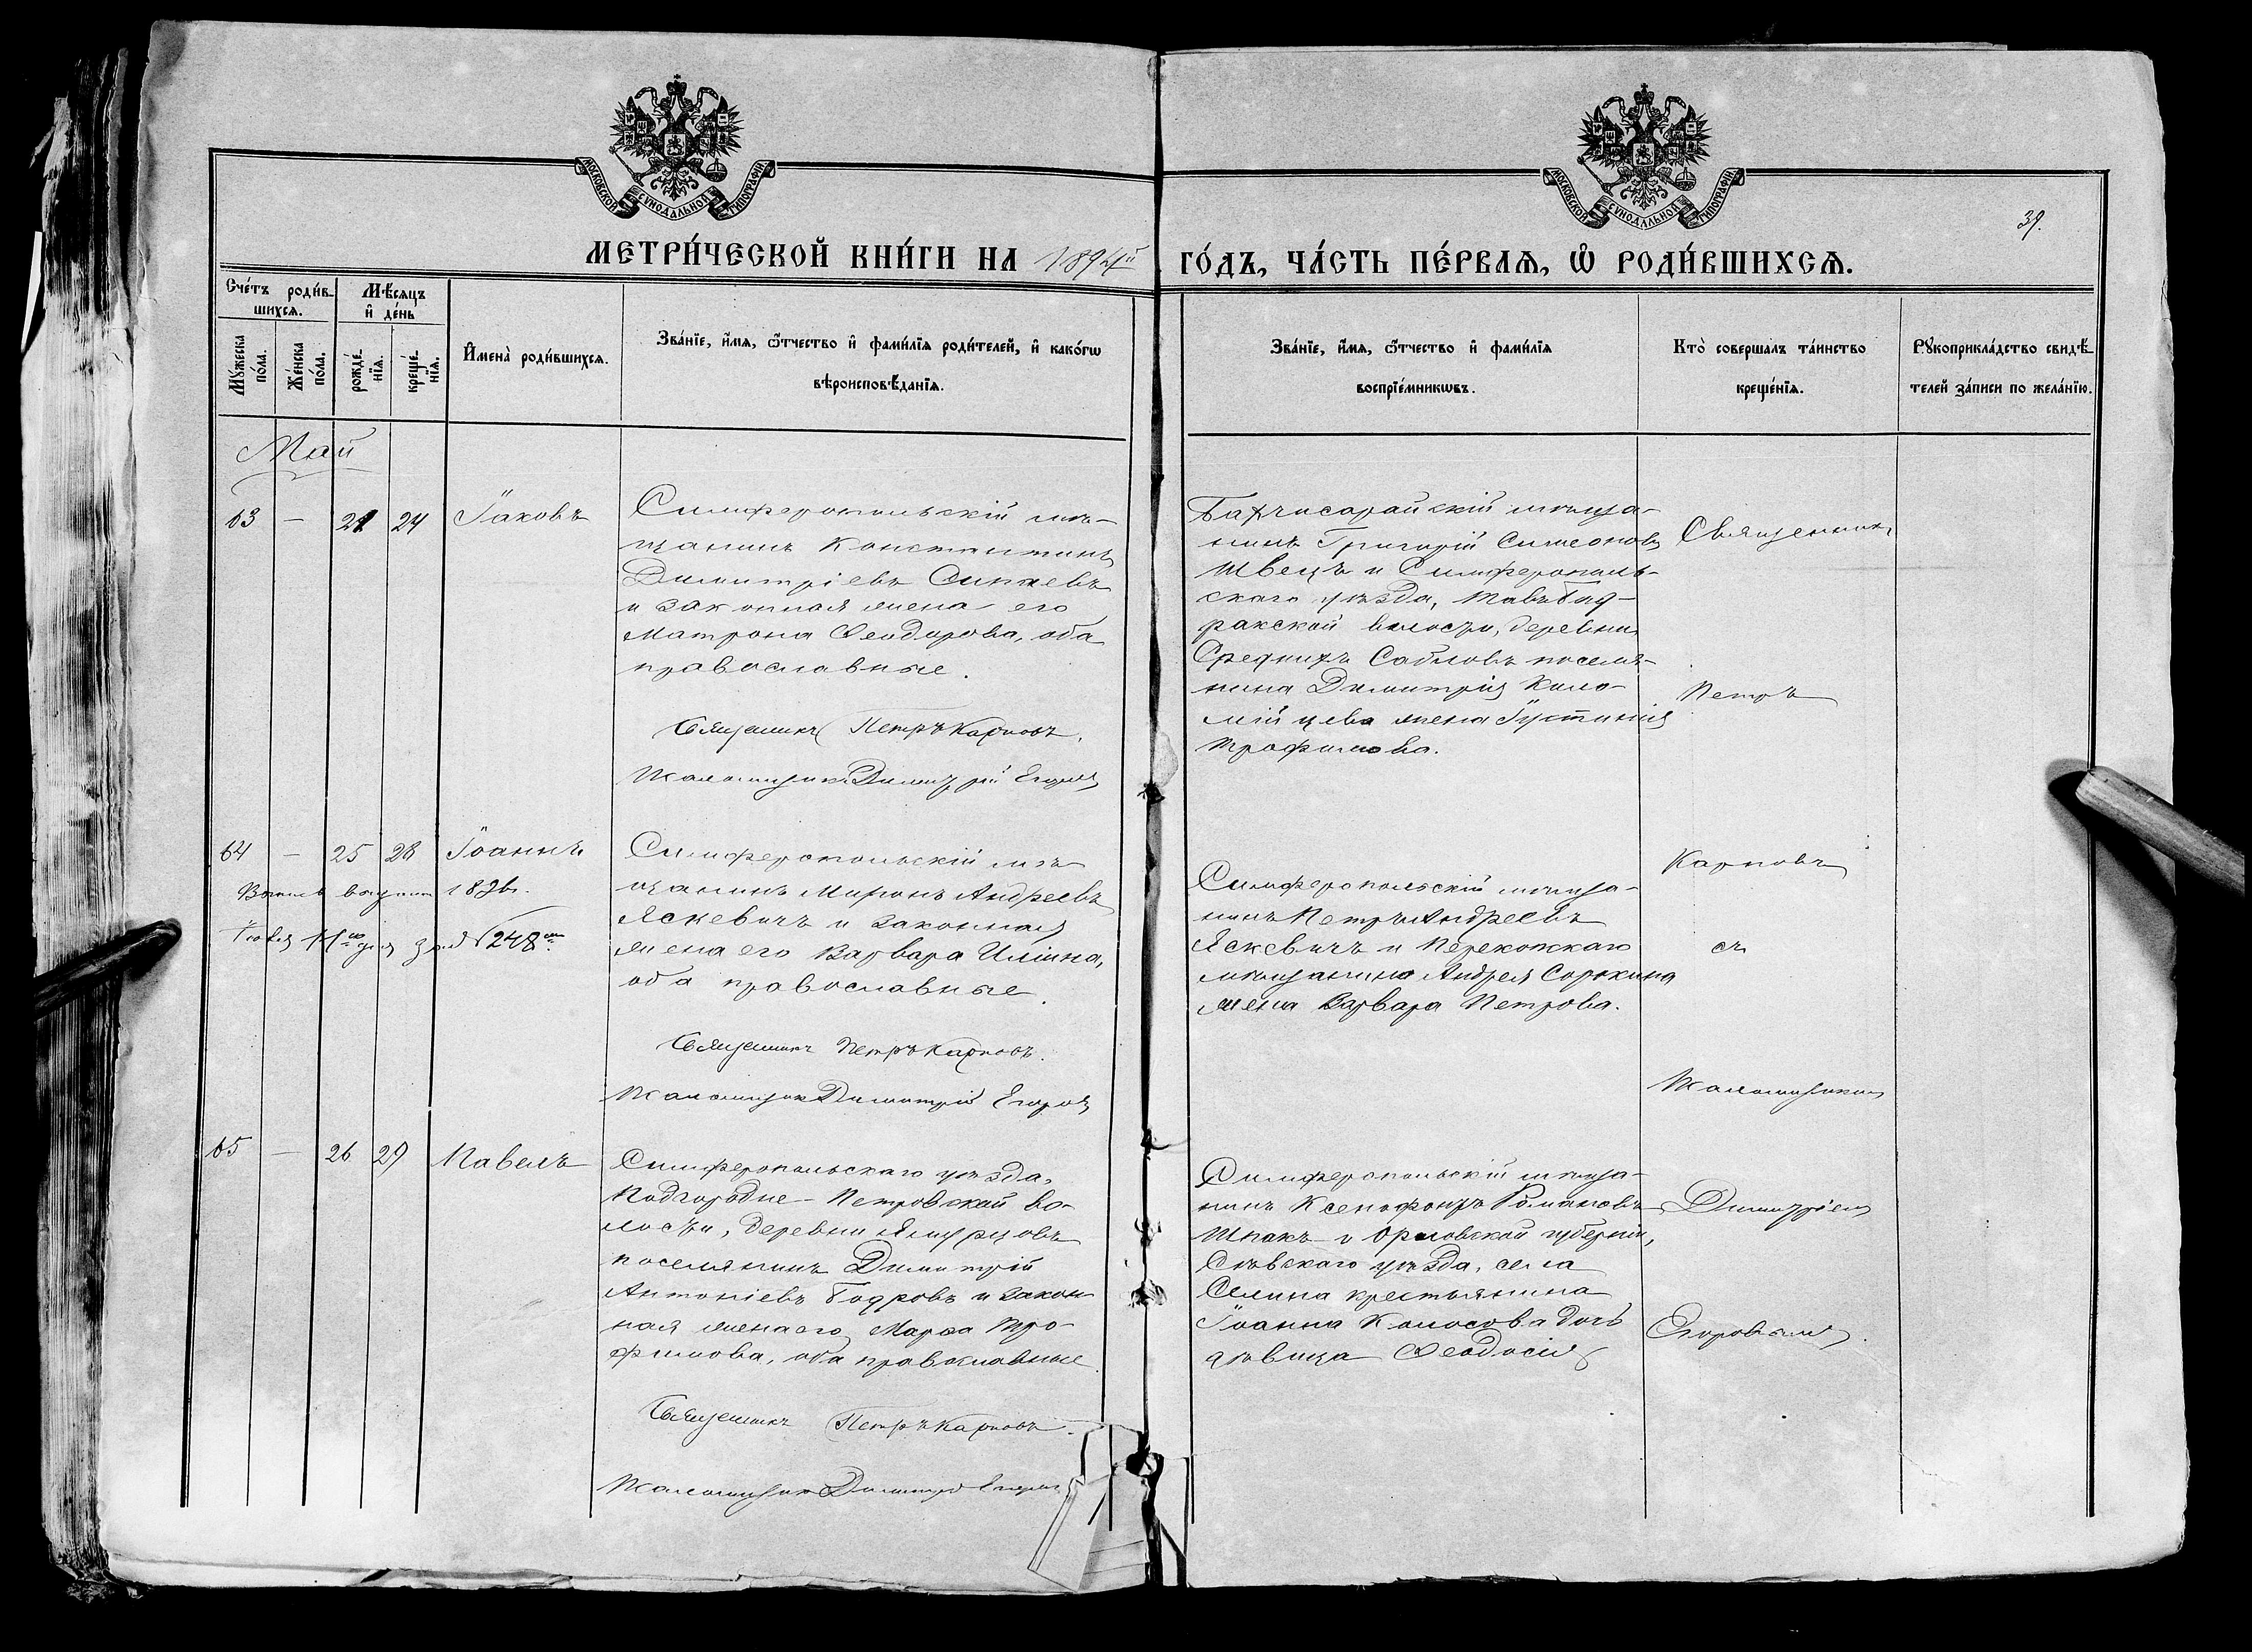 МОСКОВСКОЙ СѴНОДАЛЬНОЙ ТИПОГРАФІИ
МОСКОВСКОЙ СѴНОДАЛЬНОЙ ТИПОГРАФІИ
39.
МЕТРИ́ЧЕСКОЙ КНИ́ГИ НА 1894й ГО́ДЪ, ЧА́СТЬ ПЕ́РВАѦ, Ѡ҆ РОДИ́ВШИХСѦ.
Сче́тъ роди́в-
шихсѧ.
Мꙋ́жеска по́ла.
Же́нска по́ла.
Мѣ́сѧцъ
и҆ де́нь
рожде́-
нїѧ.
креще́-
нїѧ.
И҆мена̀ роди́вшихсѧ.
Зва́нїе, и҆́мѧ, ѻ҆́тчество и҆ фами́лїѧ роди́телей, и҆ како́гѡ
вѣроисповѣ́данїѧ.
Зва́нїе, и҆́мѧ, ѻ҆́тчество и҆ фами́лїѧ
воспрїе́мникѡвъ.
Кто̀ совершалъ та́инство
креще́нїѧ.
Рꙋкоприкла́дство свидѣ́-
телей за́писи по жела́нїю.
Май
63 — 21 24 Іаковъ
Симферопольскій мѣ-
щанинъ Константинъ
Димитріевъ
и законная жена его
Матрона Ѳеодорова, оба
православные.
Священникъ Петръ Карповъ.
Псаломщикъ Димитрій Егоровъ
Бахчисарайскій мѣща-
нинъ Григорій Симеоновъ
Швецъ и Симферополь-
скаго уѣзда, Тавъ-Бад-
ракской волости, деревни
Среднихъ Сабловъ поселя-
нина Димитрія Коло-
мійцева жена Іустинія
Трофимова.
Священникъ
Петръ
64 — 25 28 Іоаннъ
1896г.
248
Симферопольскій мѣ-
щанинъ Миронъ Андреевъ
Яскевичъ и законная
жена его Варвара Иліина,
оба православные.
Священникъ Петръ Карповъ.
Псаломщикъ Димитрій Егоровъ
Симферопольскій мѣща-
нинъ Петръ Андреевъ
Яскевичъ и Перекопскаго
мѣщанина Андрея Сорокина
жена Варвара Петрова.
Карповъ
съ
Псаломщикомъ
65 — 26 29 Павелъ
Симферопольскаго уѣзда,
Подгородне-Петровской во-
лости, деревни
поселянинъ Димитрій
Антоніевъ Бодровъ и закон-
ная жена его Марѳа Тро-
фимова, оба православные
Священникъ Петръ Карповъ.
Псаломщикъ Димитрій Егоровъ
Симферопольскій мѣща-
нинъ Ксенофонтъ Романовъ
Шпакъ и Орловской губерніи,
Сѣвскаго уѣзда, села
Селина крестьянина
Іоанна Колосова дочь
дѣвица Ѳеодосія
Димитріемъ
Егоровымъ.